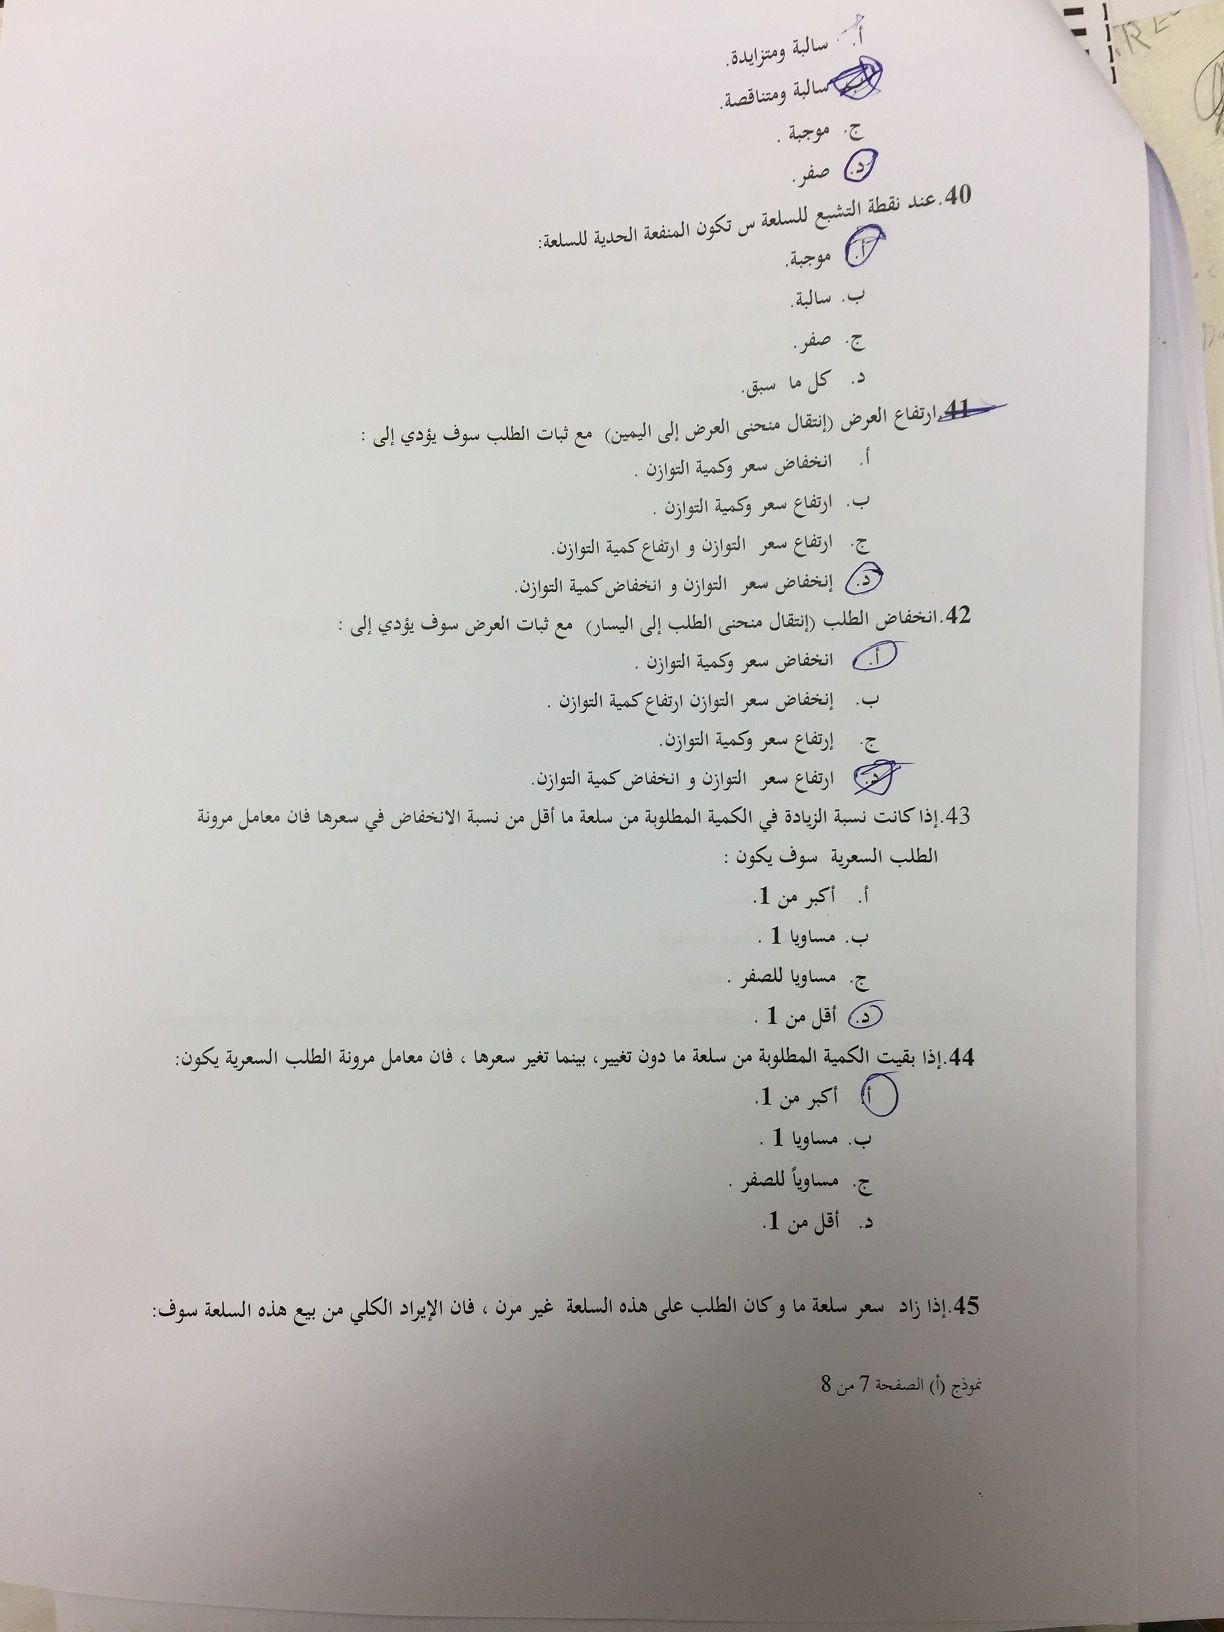 أ. سالبة ومتزايدة.
ب. سالبة ومتناقصة.
ج. موجبة .
د. صفر.
40. عند نقطة التشبع للسلعة س تكون المنفعة الحدية للسلعة:
أ. موجبة.
ب. سالبة.
ج. صفر.
د. كل ما سبق.
41. ارتفاع العرض (إنتقال منحنى العرض إلى اليمين) مع ثبات الطلب سوف يؤدي إلى :
أ. انخفاض سعر وكمية التوازن .
ب. ارتفاع سعر وكمية التوازن .
ج. ارتفاع سعر التوازن و ارتفاع كمية التوازن.
د. إنخفاض سعر التوازن و انخفاض كمية التوازن.
42. انخفاض الطلب (إنتقال منحنى الطلب إلى اليسار) مع ثبات العرض سوف يؤدي إلى :
أ. انخفاض سعر وكمية التوازن .
ب. إنخفاض سعر التوازن ارتفاع كمية التوازن .
ج. إرتفاع سعر وكمية التوازن.
د. ارتفاع سعر التوازن و انخفاض كمية التوازن.
43. إذا كانت نسبة الزيادة في الكمية المطلوبة من سلعة ما أقل من نسبة الانخفاض في سعرها فان معامل مرونة
الطلب السعرية سوف يكون :
أ. أكبر من 1.
ب. مساويا 1 .
ج. مساويا للصفر .
د. أقل من 1 .
44. إذا بقيت الكمية المطلوبة من سلعة ما دون تغيير، بينما تغير سعرها ، فان معامل مرونة الطلب السعرية يكون:
أ. أكبر من 1.
ب. مساويا 1 .
ج. مساوياً للصفر .
د. أقل من 1.
45. إذا زاد سعر سلعة ما و كان الطلب على هذه السلعة غير مرن ، فان الإيراد الكلي من بيع هذه السلعة سوف:
نموذج (أ) الصفحة 7 من 8